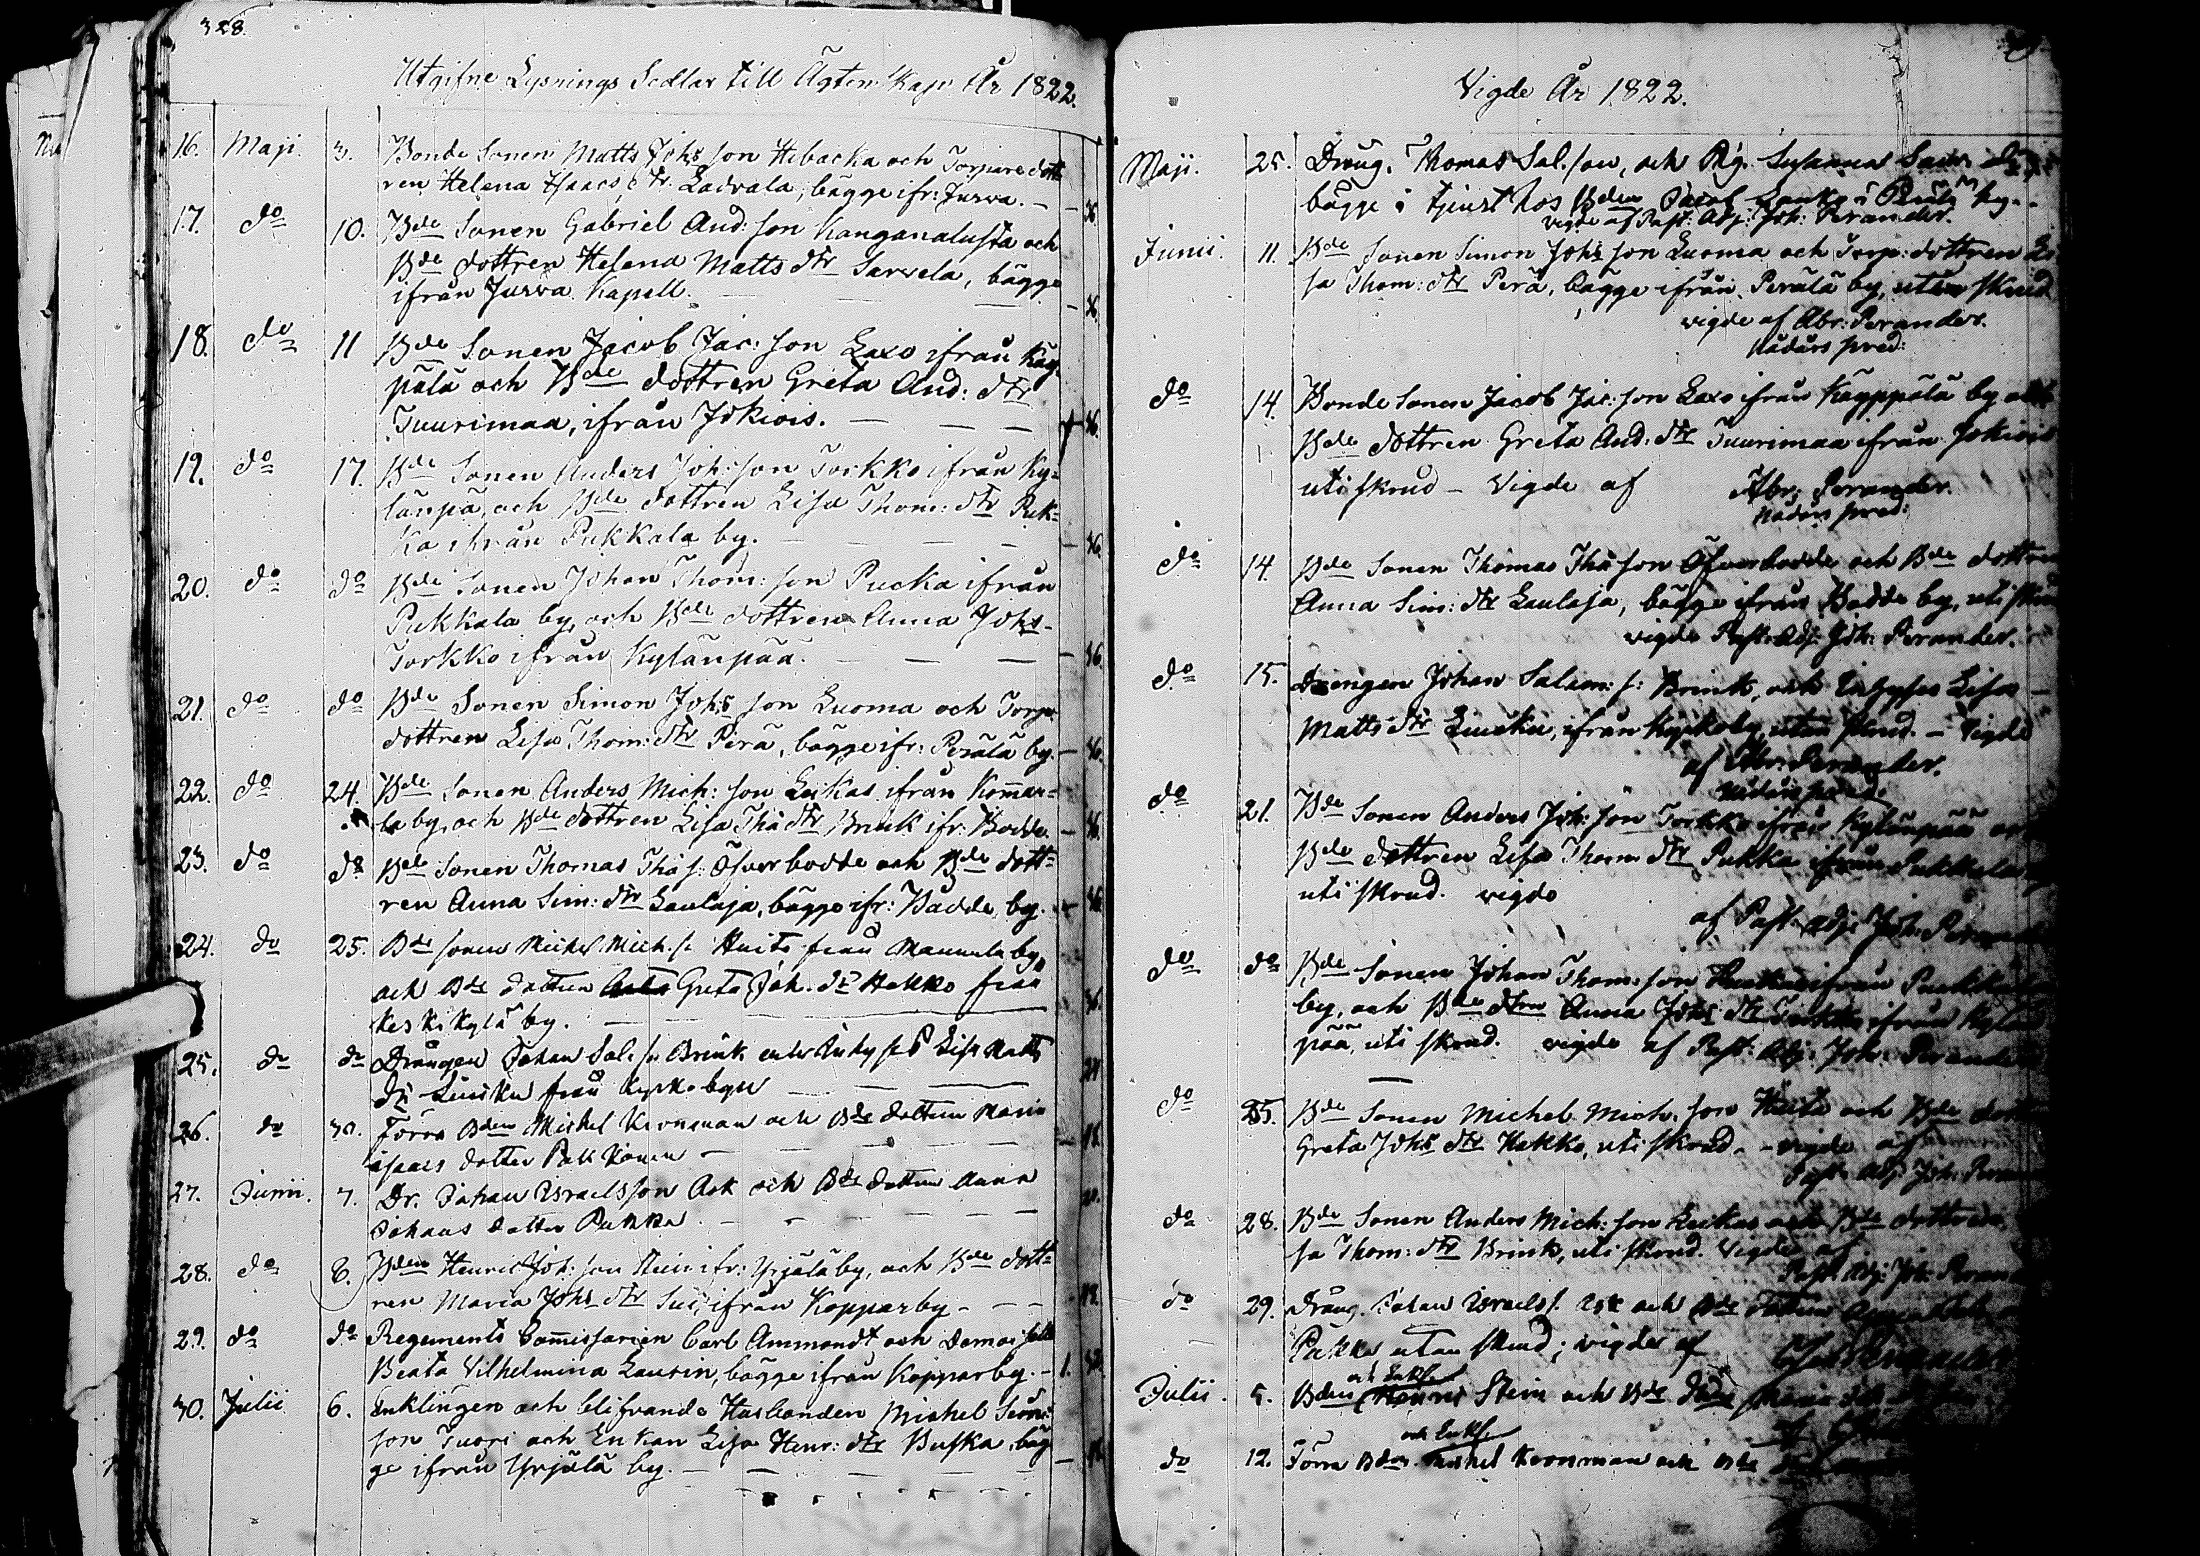 328.
Utgifne Lysnings Sedlar till Ägtenskap År 1822.
16. Maji. 3. Bonde Sonen Matts Johs son Hibacka och Torpare dott
ren Helena Isaacs dtr. Ladvala, bägge ifr: Jurva. —
17. do 10. Bde Sonen Gabriel And: son Kanganalusta och
Bde dottren Helena Matts dtr Sarvela, bägge
ifrån Jurva Kapell. — — —
18. do 11 Bde Sonen Jacob Jac: son Laxo ifrån Käp
pälä och Bde dottren Greta And: dtr
Tuurimaa, ifrån Jokiois. — — —
19. do 17. Bde Sonen Anders Joh: son Torkko ifrån Ky-
länpä, och Bde dottren Lisa Thom: dtr Puk-
ka ifrån Pukkala by. — — —
20. do do Bde Sonen Johan Thom: son Pucka ifrån
Pukkala by, och Bde dottren Anna Johs-
Torkko ifrån Kylänpää. — — —
21. do do Bde Sonen Simon Johs son Luoma och Torp.
dottren Lisa Thom: dtr Perä, bägge ifr: Perälä by.
22. do 24. Bde Sonen Anders Mich: son Leikas ifrån Komar-
la by, och Bde dottren Lisa Thå dtr Brink ifr: Bodde.
23. do do Bde Sonen Thomas Thå s: Öfverbodde och Bde dott-
ren Anna Sim: dtr Laulaja, bägge ifr: Bodde by.
24. do 25. Bde sonen Michel Mich. s. Huita från Mannila by,
och Bde dottren Greta Joh. dr Hakko från
Keskikylä by. —
25. do do Drängen Johan Sal. s. Brink och Inhyses P Lisa Matts
dr Luuku från Kyrkobyn — —
26. do 30. Förra Bden Michel Kronman och Bde dottren Maria
Isaacs dotter Pakkonen — — —
27. Junii. 7. Dr. Johan Israelsson Ask och Bde dottren Anna
Johans dotter Pukka. — — —
28. do 8. Bden Henric Joh: son ifr: Yrjälä by, och Bde dott-
ren Maria Johs dtr Sui, ifrån Kopparby — — —
29. do do Regements Commissarien Carl Ammondt och Demoiselle
Beata Vilhelmina Laurin, bägge ifrån Kopparby. — 1.
30. Julii 6. Enklingen och blifvande Husbonden Michel Sim:
son Tuori och Enkan Lisa Henr: dtr Buska, bäg
ge ifrån Yrjälä by. — — —
Vigde År 1822.
Maji. 25. Dräng. Thomas Sal. son, och Pig. Susanna
bägge i tjenst hos Bden Jacob Lanko i by.
vigde af Past: Adj: Joh: Perander.
Junii. 11. Bde Sonen Simon Johs son Luoma och Torp: dottren Li
sa Thom: dtr Perä, bägge ifrån Perälä by, utan skrud
vigde af Abr: Perander.
Nådårs pred:
do 14. Bonde Sonen Jacob Jac: son Laxo ifrån Käpppälä by och
Bde dottren Greta And: dtr Tuurimaa ifrån Jokiois
uti skrud — Vigde af Abr: Perander.
Nådårs pred:
do 14. Bde Sonen Thomas Thå son Öfverbodde och Bde dottren
Anna Sim: dtr Laulaja, bägge ifrån Bodde by, uti skrud
vigde Past: Adj: Joh: Perander.
do 15. Drengen Johan Salom: s: Brink, och Inhyses Lisa —
Matts dtr Luuku, ifrån Kyrkoby, utan skrud. — Vigde
af Abr: Perander.
Nådårs pred:
do 21. Bde Sonen Anders Joh: son Torkko ifrån Kylänpää och
Bde dottren Lisa Thom: dtr Pukka ifrån Pukkala
uti skrud. vigde
af Past: Adj: Joh: Perander
do do Bde Sonen Johan Thom: son ifrån Puckkala
by, och Bde dtren Anna Johs dtr Torkko ifrån Kylän
pää, uti skrud. vigde af Past: Adj: Joh: Perander
do 25. Bde Sonen Michel Mich: son Huita och Bde dottren
Greta Johs dtr Hakko, uti skrud. — vigde af
Past: Adj: Joh: Perander
do 28. Bde Sonen Anders Mich: son Leikas och Bde dottren
sa Thom: dtr Brink, uti skrud. Vigde af
Past: Adj: Joh: Perander
do 29. Dräng. Johan Israels s. Ask och Bde dottren
Pukka utan skrud; vigde af
Julii. 5. Bden Henric Stein och Bde
do 12. Förra Bden Michel Kronman och Bde